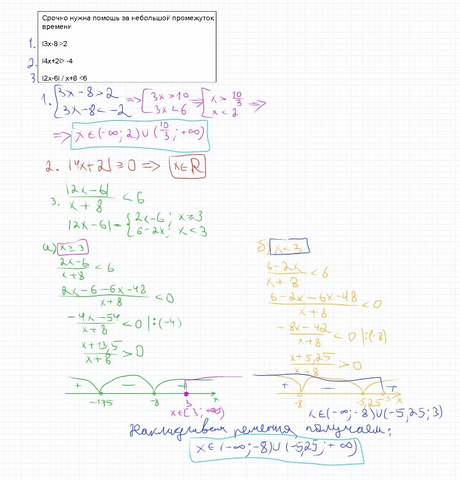 Срочно нужна помощь за небольшой промежуток
времени
1. |3x-8|>2
2. |4x+2|> -4
3. |2x-6| / x+8 <6
1. [3x-8>2 => [3x>10 => [x>10/3 =>
[3x-8<-2 [3x<6 [x<2
=> x∈(-∞; 2)∪(10/3; +∞)
2. |4x+2|≥0 => x∈R
3. |2x-6|/x+8 < 6
|2x-6|={2x-6; x≥3
{6-2x; x<3
а) x≥3
2x-6/x+8 <6
2x-6-6x-48/x+8 <0
-4x-54/x+8 <0 |:(-4)
x+13,5/x+8 >0
+ - + x
-13,5 -8 3
x∈[3; +∞)
б) x<3
6-2x/x+8 <6
6-2x-6x-48/x+8 <0
-8x-42/x+8 <0 |:(-8)
x+5,25/x+8 >0
+ - +
-8 -5,25 3 x
x∈(-∞;-8)∪(-5,25; 3)
Накладывая решения, получаем:
x∈(-∞;-8)∪(-5,25; +∞)